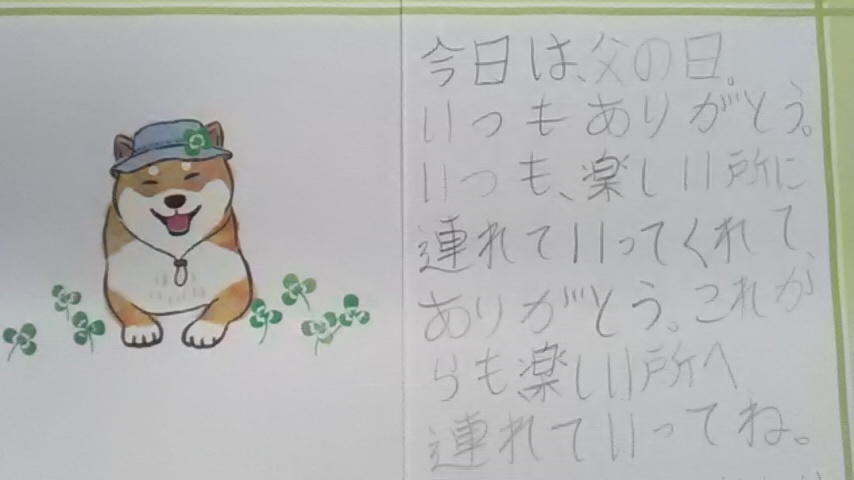 今日は、父の日。
いつもありがとう。
いつも、楽しい所に
連れていってくれて、
ありがとう。これか
らも、楽しい所へ
連れていってね。